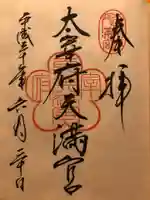 奉拝
太宰府天満宮
平成三十年六月二十日